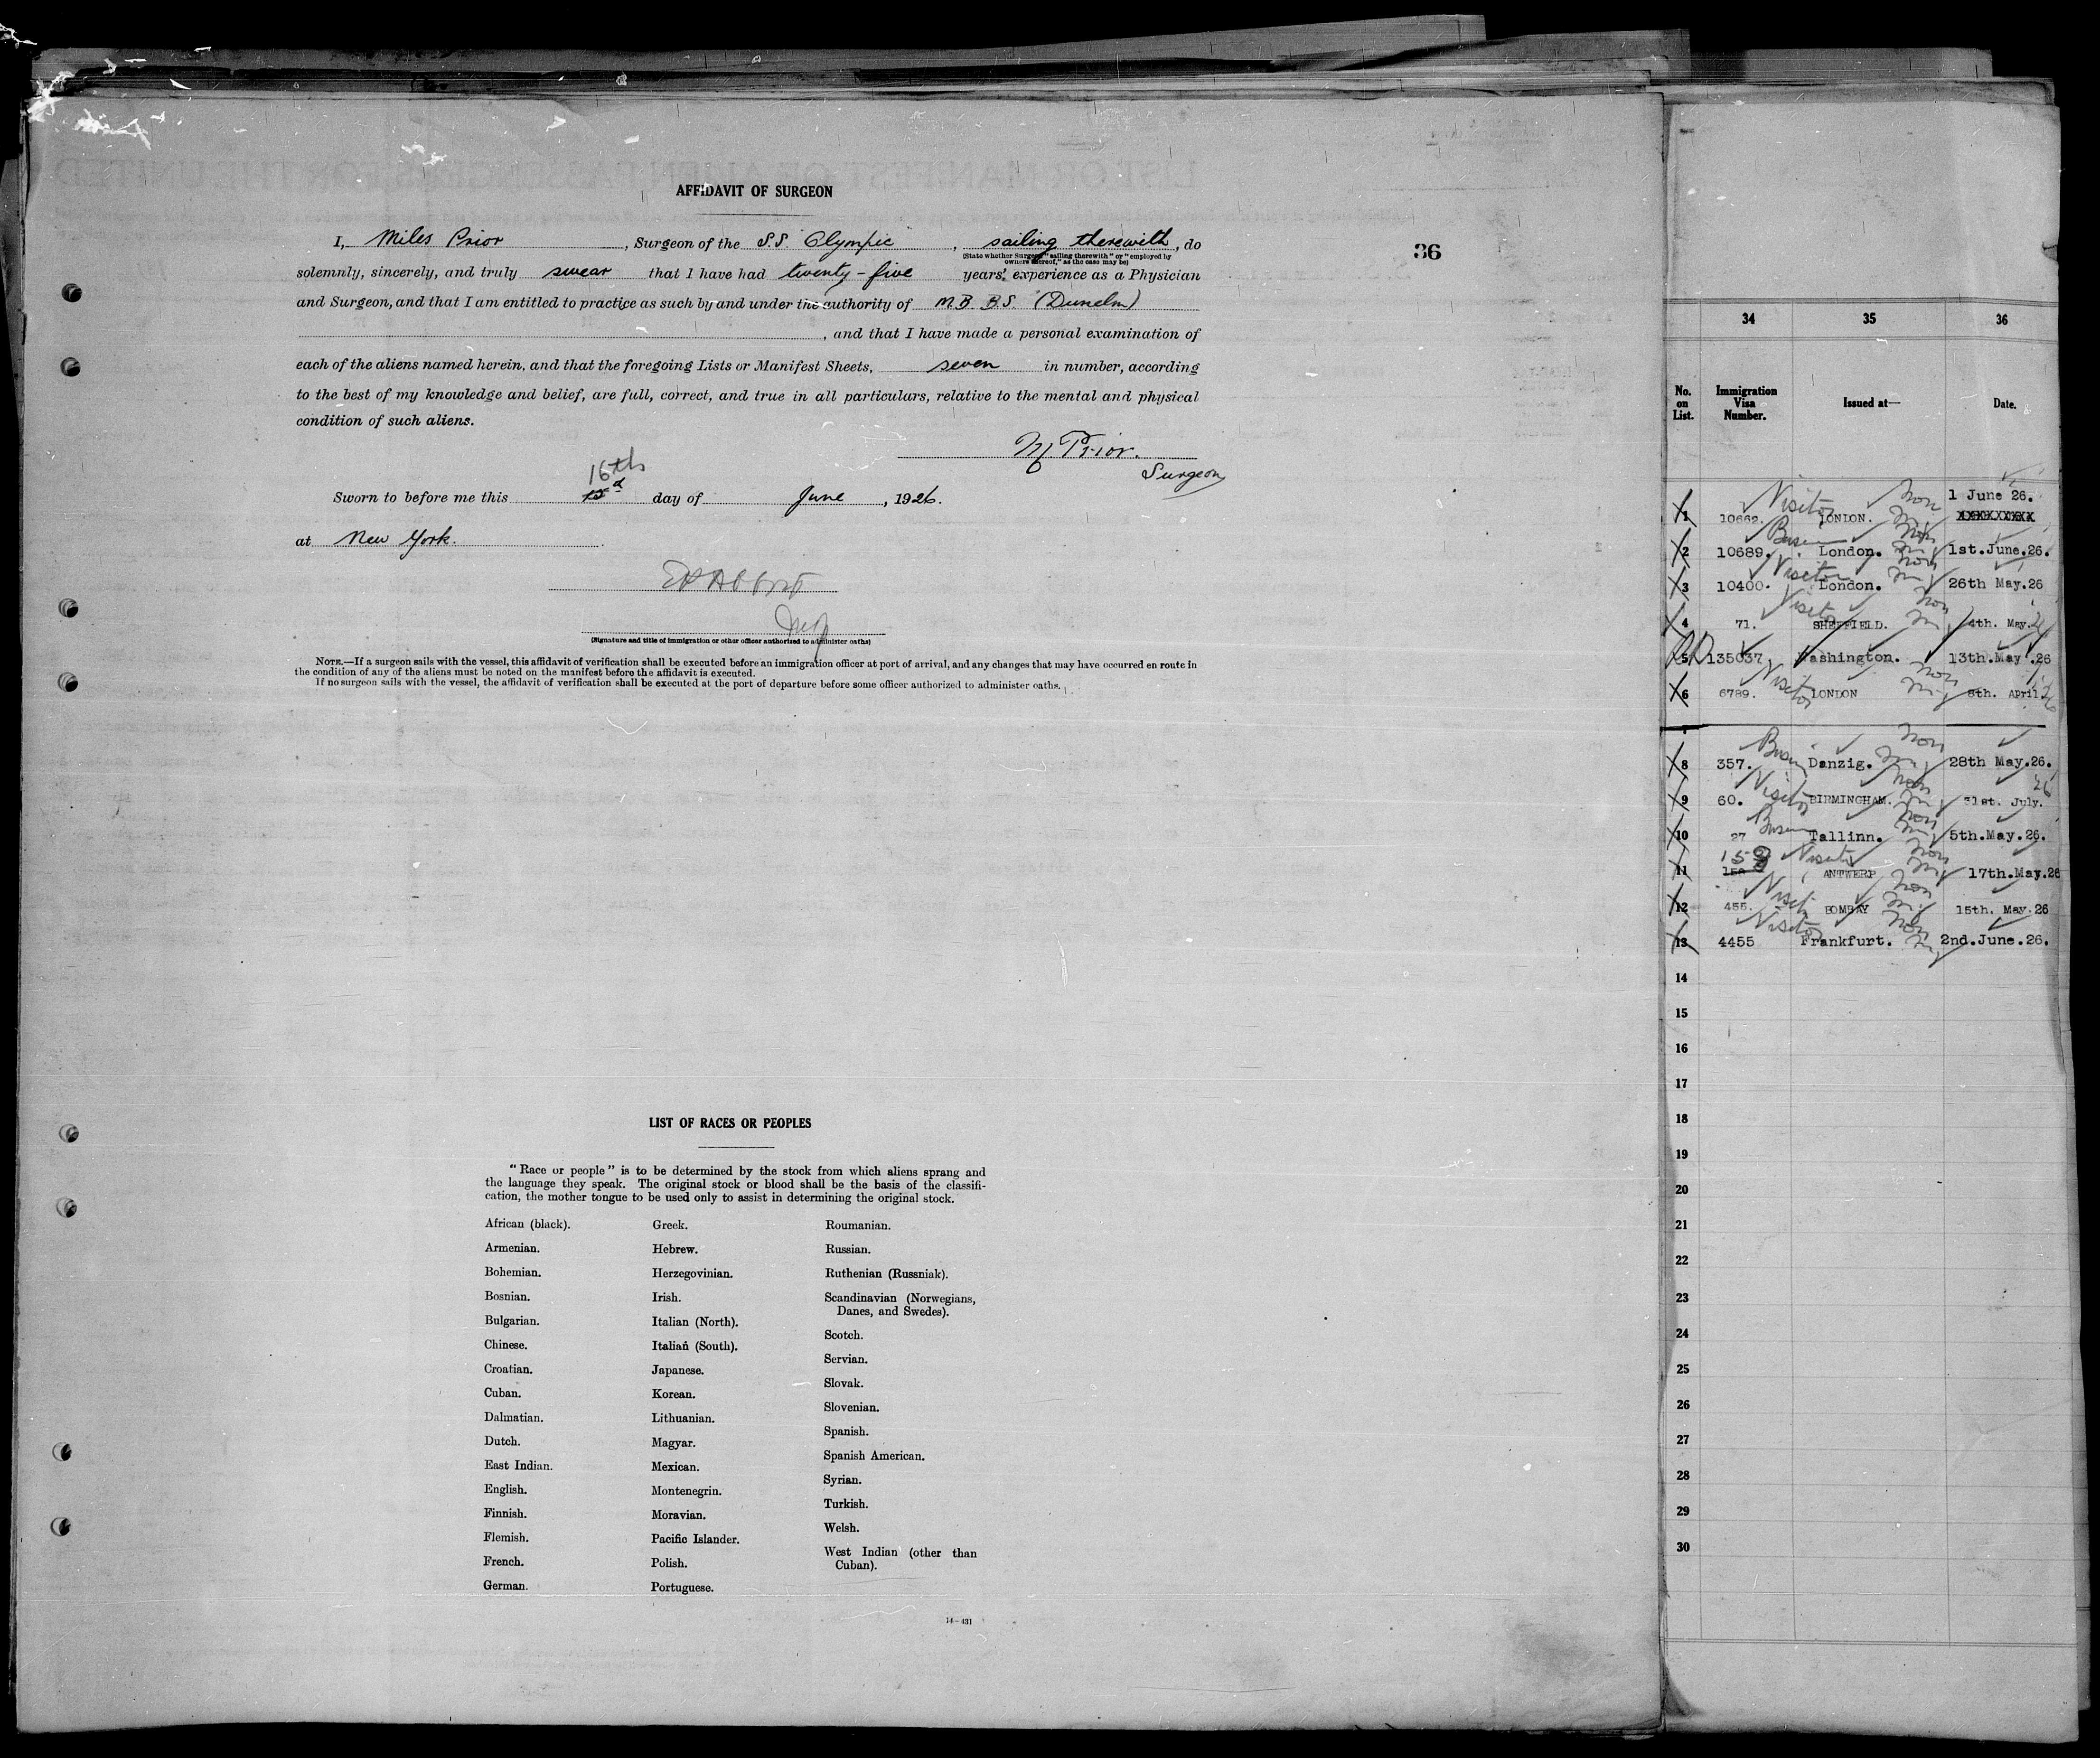 AFFIDAVIT OF SURGEON
I, Miles Prior, Surgeon of the S.S. Olympic, sailing therewith, do
(State whether Surgeon "sailing therewith" or "employed by
owners thereof," as the case may be)
solemnly, sincerely, and truly swear that I have had twenty-five years' experience as a Physician
and Surgeon, and that I am entitled to practice as such by and under the authority of M.B. B.S. (Dunelm)
, and that I have made a personal examination of
each of the aliens named herein, and that the foregoing Lists or Manifest Sheets, seven in number, according
to the best of my knowledge and belief, are full, correct, and true in all particulars, relative to the mental and physical
condition of such aliens.
M Prior.
Surgeon
16th
Sworn to before me this day of June, 1926.
at New York.
(Signature and title of immigration or other officer authorized to administer oaths)
NOTE.—If a surgeon sails with the vessel, this affidavit of verification shall be executed before an immigration officer at port of arrival, and any changes that may have occurred en route in
the condition of any of the aliens must be noted on the manifest before the affidavit is executed.
If no surgeon sails with the vessel, the affidavit of verification shall be executed at the port of departure before some officer authorized to administer oaths.
36
LIST OF RACES OR PEOPLES
"Race or people" is to be determined by the stock from which aliens sprang and
the language they speak. The original stock or blood shall be the basis of the classifi-
cation, the mother tongue to be used only to assist in determining the original stock.
African (black).
Armenian.
Bohemian.
Bosnian.
Bulgarian.
Chinese.
Croatian.
Cuban.
Dalmatian.
Dutch.
East Indian.
English.
Finnish.
Flemish.
French.
German.
Greek.
Hebrew.
Herzegovinian.
Irish.
Italian (North).
Italian (South).
Japanese.
Korean.
Lithuanian.
Magyar.
Mexican.
Montenegrin.
Moravian.
Pacific Islander.
Polish.
Portuguese.
Roumanian.
Russian.
Ruthenian (Russniak).
Scandinavian (Norwegians,
Danes, and Swedes).
Scotch.
Servian.
Slovak.
Slovenian.
Spanish.
Spanish American.
Syrian.
Turkish.
Welsh.
West Indian (other than
Cuban).
14-431
34 35 36
No. on List. Immigration Visa Number. Issued at— Date.
1 10662. Visitor LONDON. Non 1 June 26.
2 10689. London. Non 1st.June.26.
3 10400. Visitor London. Non 26th May.26
4 71. Visitor SHEFFIELD. Non 4th. May.26
5 135037 Washington. 13th.May.26
6 6789. Visitor LONDON Non 8th. April.26
7
8 357. Danzig. Non 28th May.26.
9 60. Visitor BIRMINGHAM. Non July. 26
10 27 Tallinn. Non 5th.May.26.
11 159 Visitor ANTWERP Non 17th.May.26
12 455. Visitor BOMBAY Non 15th. May.26
13 4455 Visitor Frankfurt. Non 2nd.June.26.
14
15
16
17
18
19
20
21
22
23
24
25
26
27
28
29
30